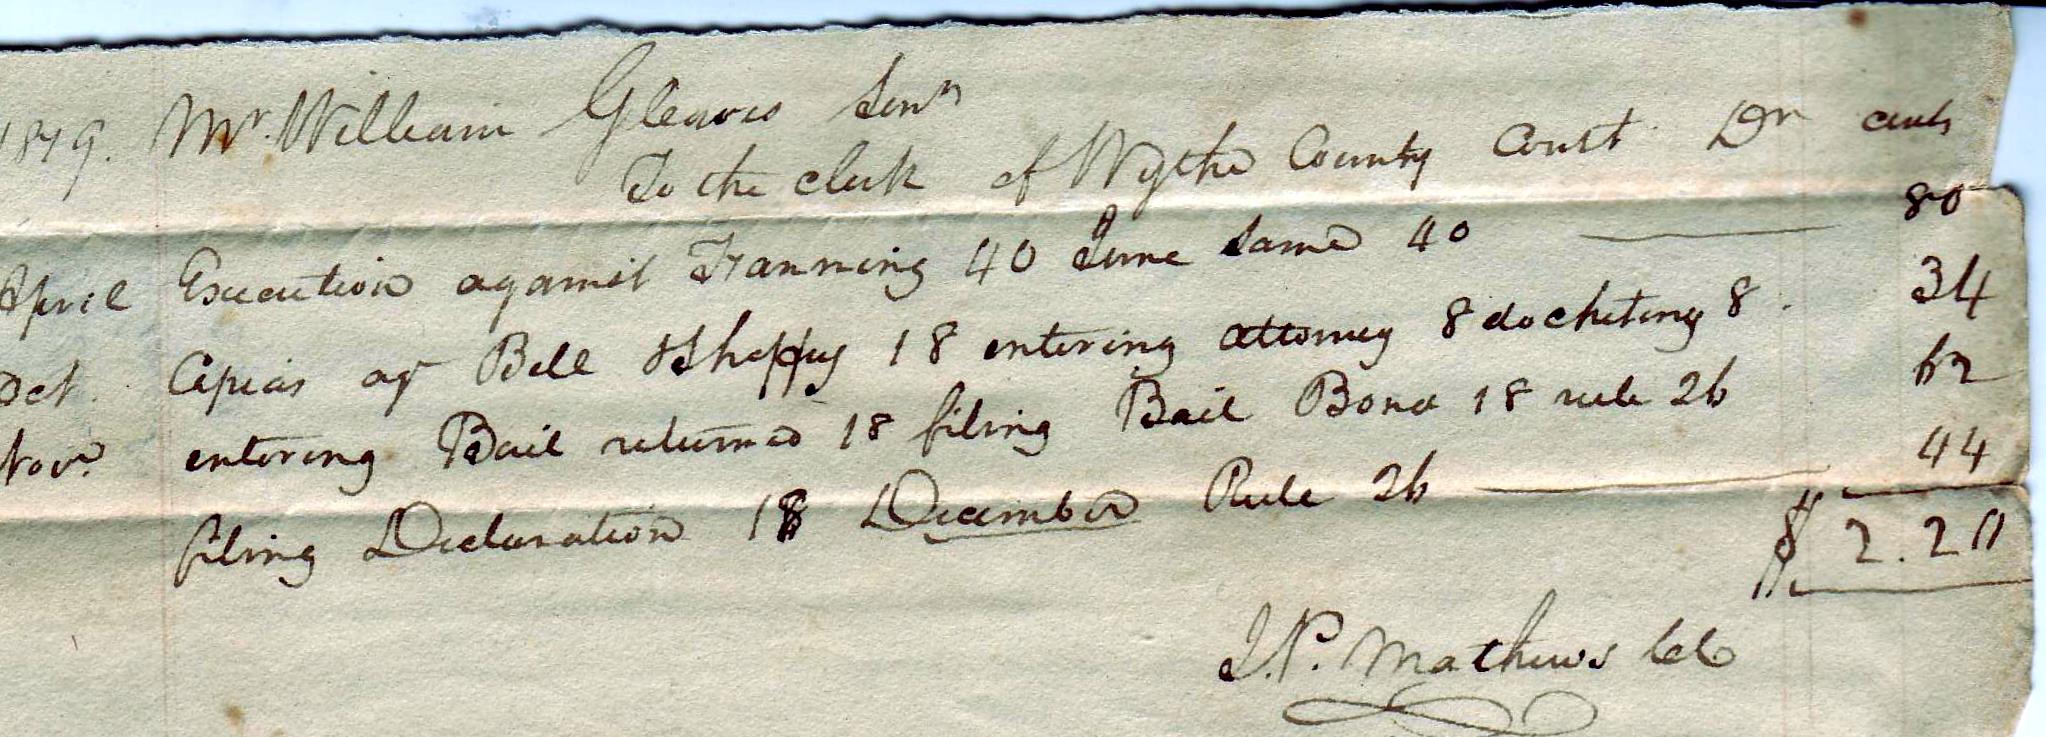 1819. Mr. William Gleaves Senr
To the clerk of Wythe County Court Dr cents
April Execution against Franning 40 June same 40 80
Oct. Capias agt Bell & Sheffey 18 entering attorney 8 docketing 8. 34
Novr entering Bail returned 18 filing Bail Bond 18 rule 26 62
filing Declaration 18 December Rule 26 44
$ 2.20
J.P. Mathews